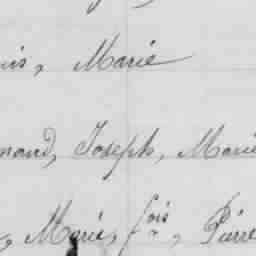 Marie
Joseph, Marie
Marie, fois, Pierre